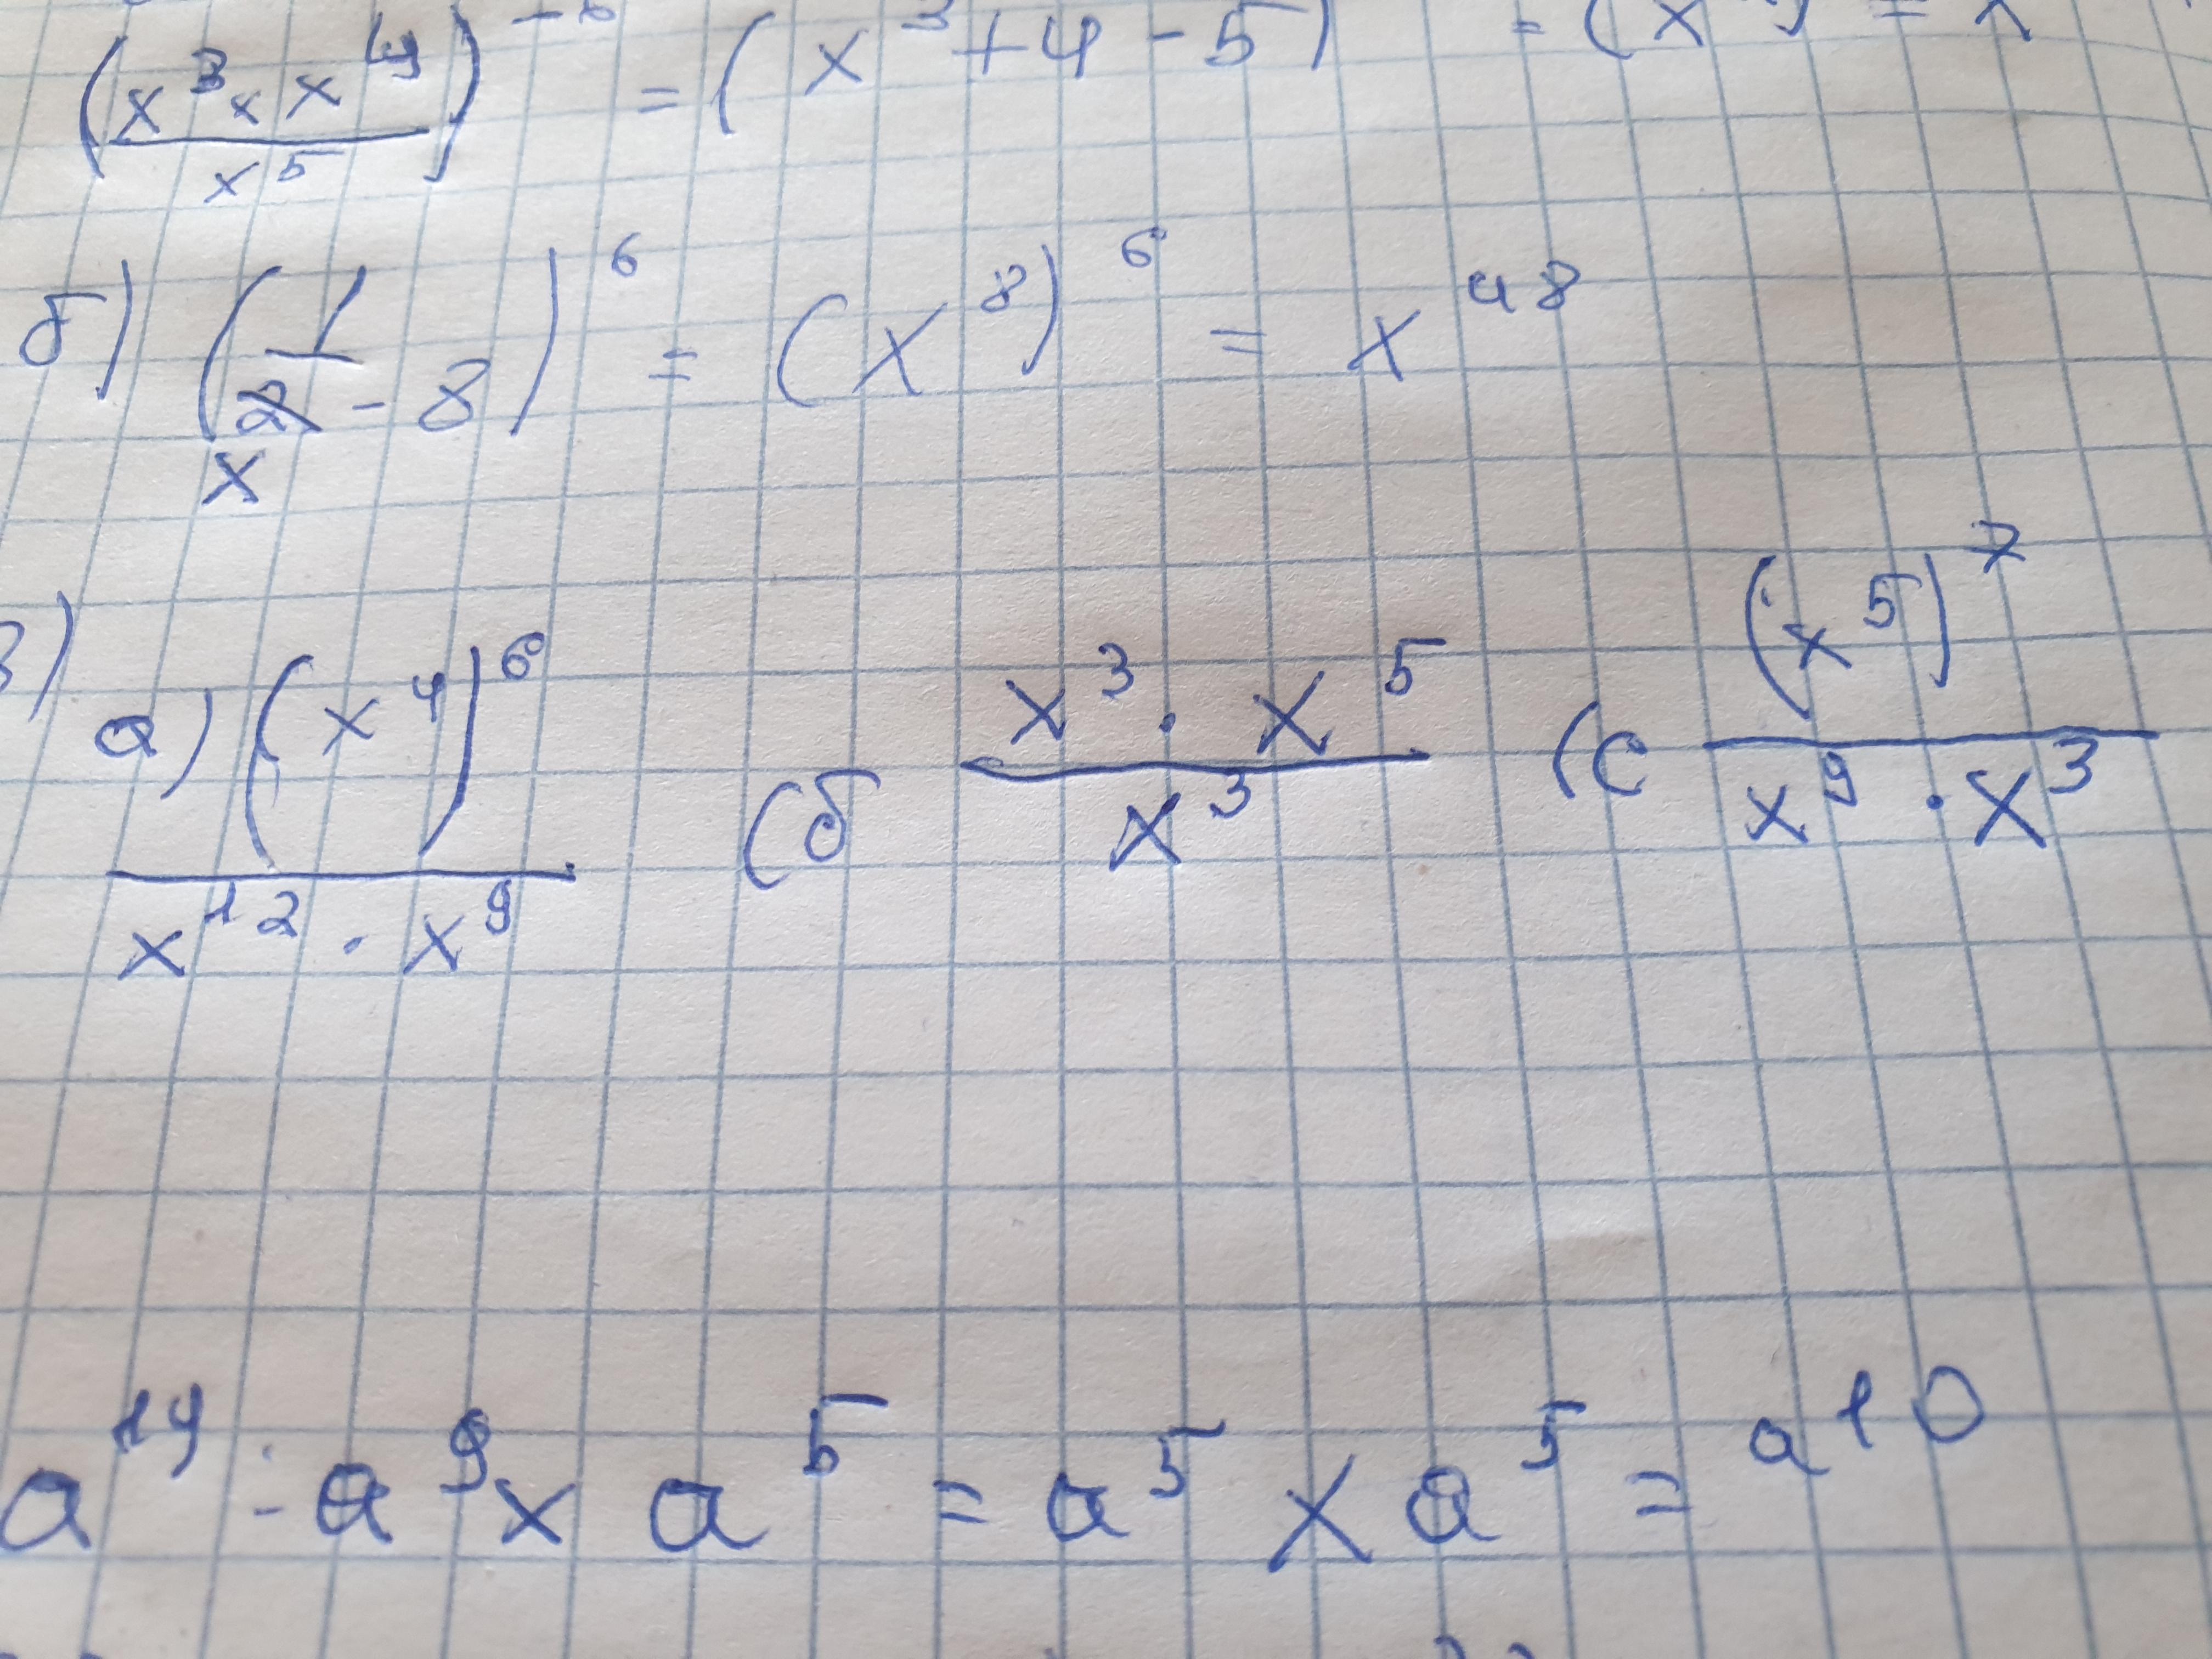 (x³ × x⁴ / x⁵)⁻⁶ = (x³ + 4 - 5) = (x
б) (1 / x - 8)⁶ = (x⁸)⁶ = x⁴⁸
3)
а) (x⁴)⁶ / x¹² · x⁹ (б x³ · x⁵ / x³ (c (x⁵)⁷ / x⁹ · x³
a¹⁴ : a⁹ × a⁵ = a⁵ × a⁵ = a¹⁰